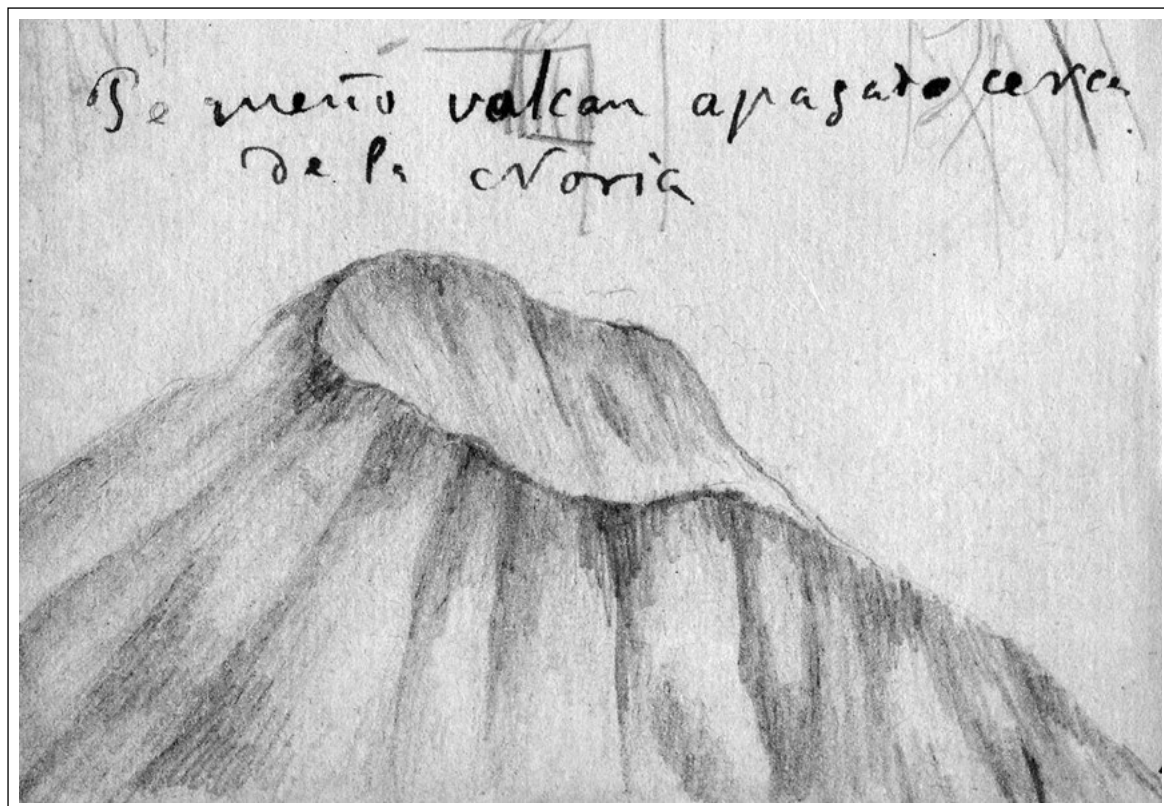 Pequeño volcan apagado cerca
de la Noria